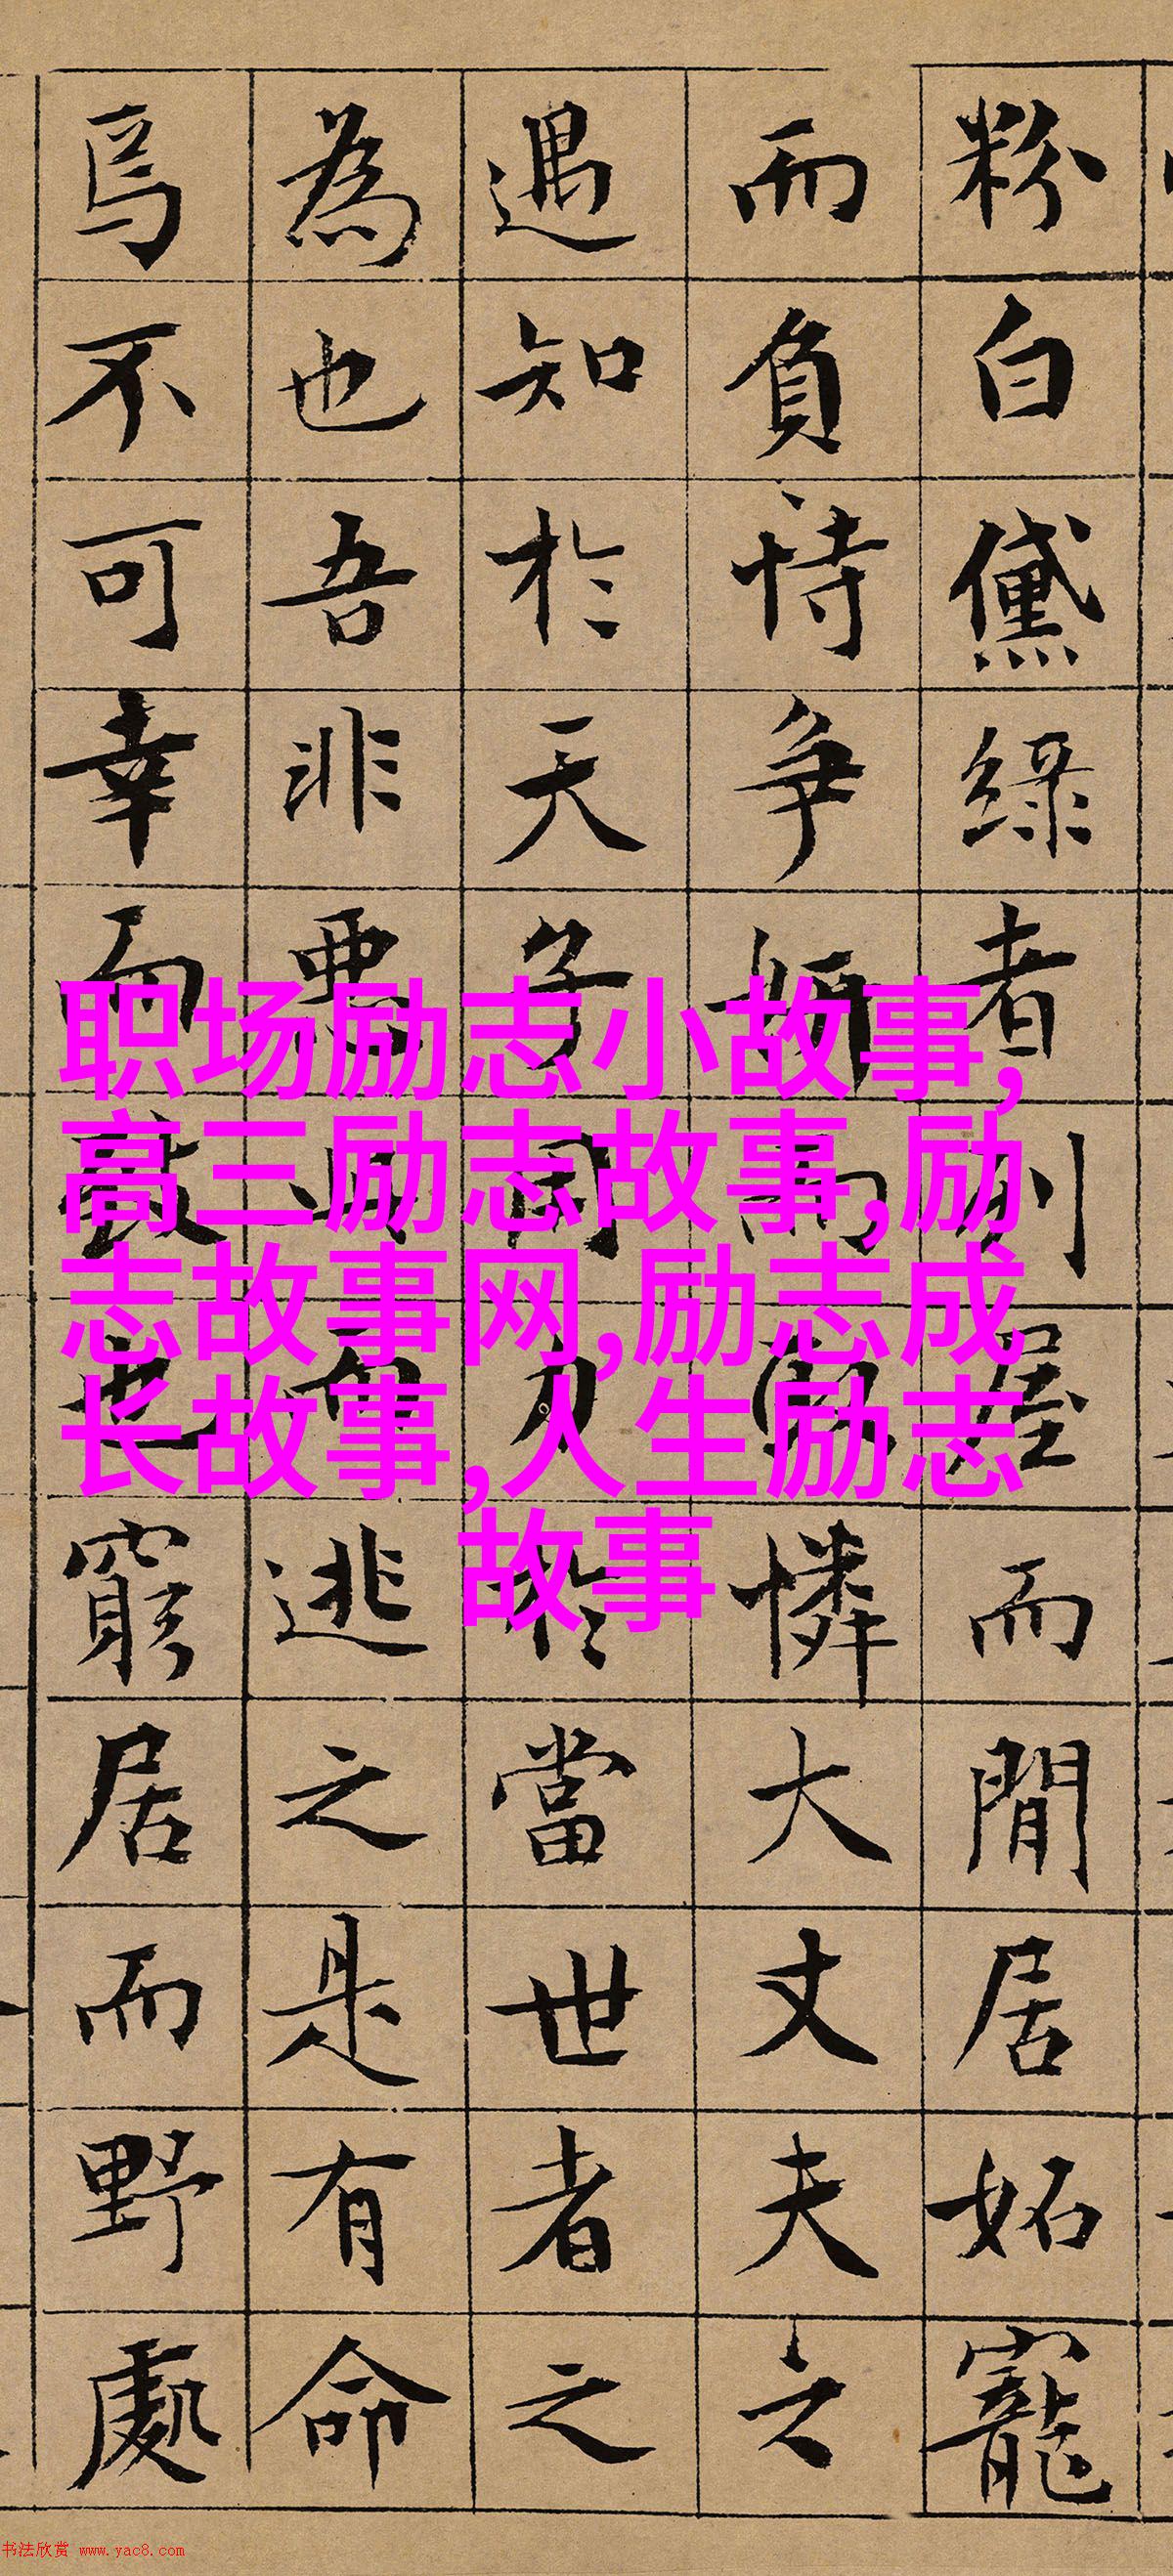 粉白黛綠者列屋而閒居妬寵
而負恃争妍而取憐大丈夫之
遇知於天子用力於當世者之
為也吾非惡此而逃之是有命
焉不可幸而致也窮居而野處
职场励志小故事,
高三励志故事,励
志故事网,励志成
长故事,人生励志
故事
书法欣赏 www.yac8.com